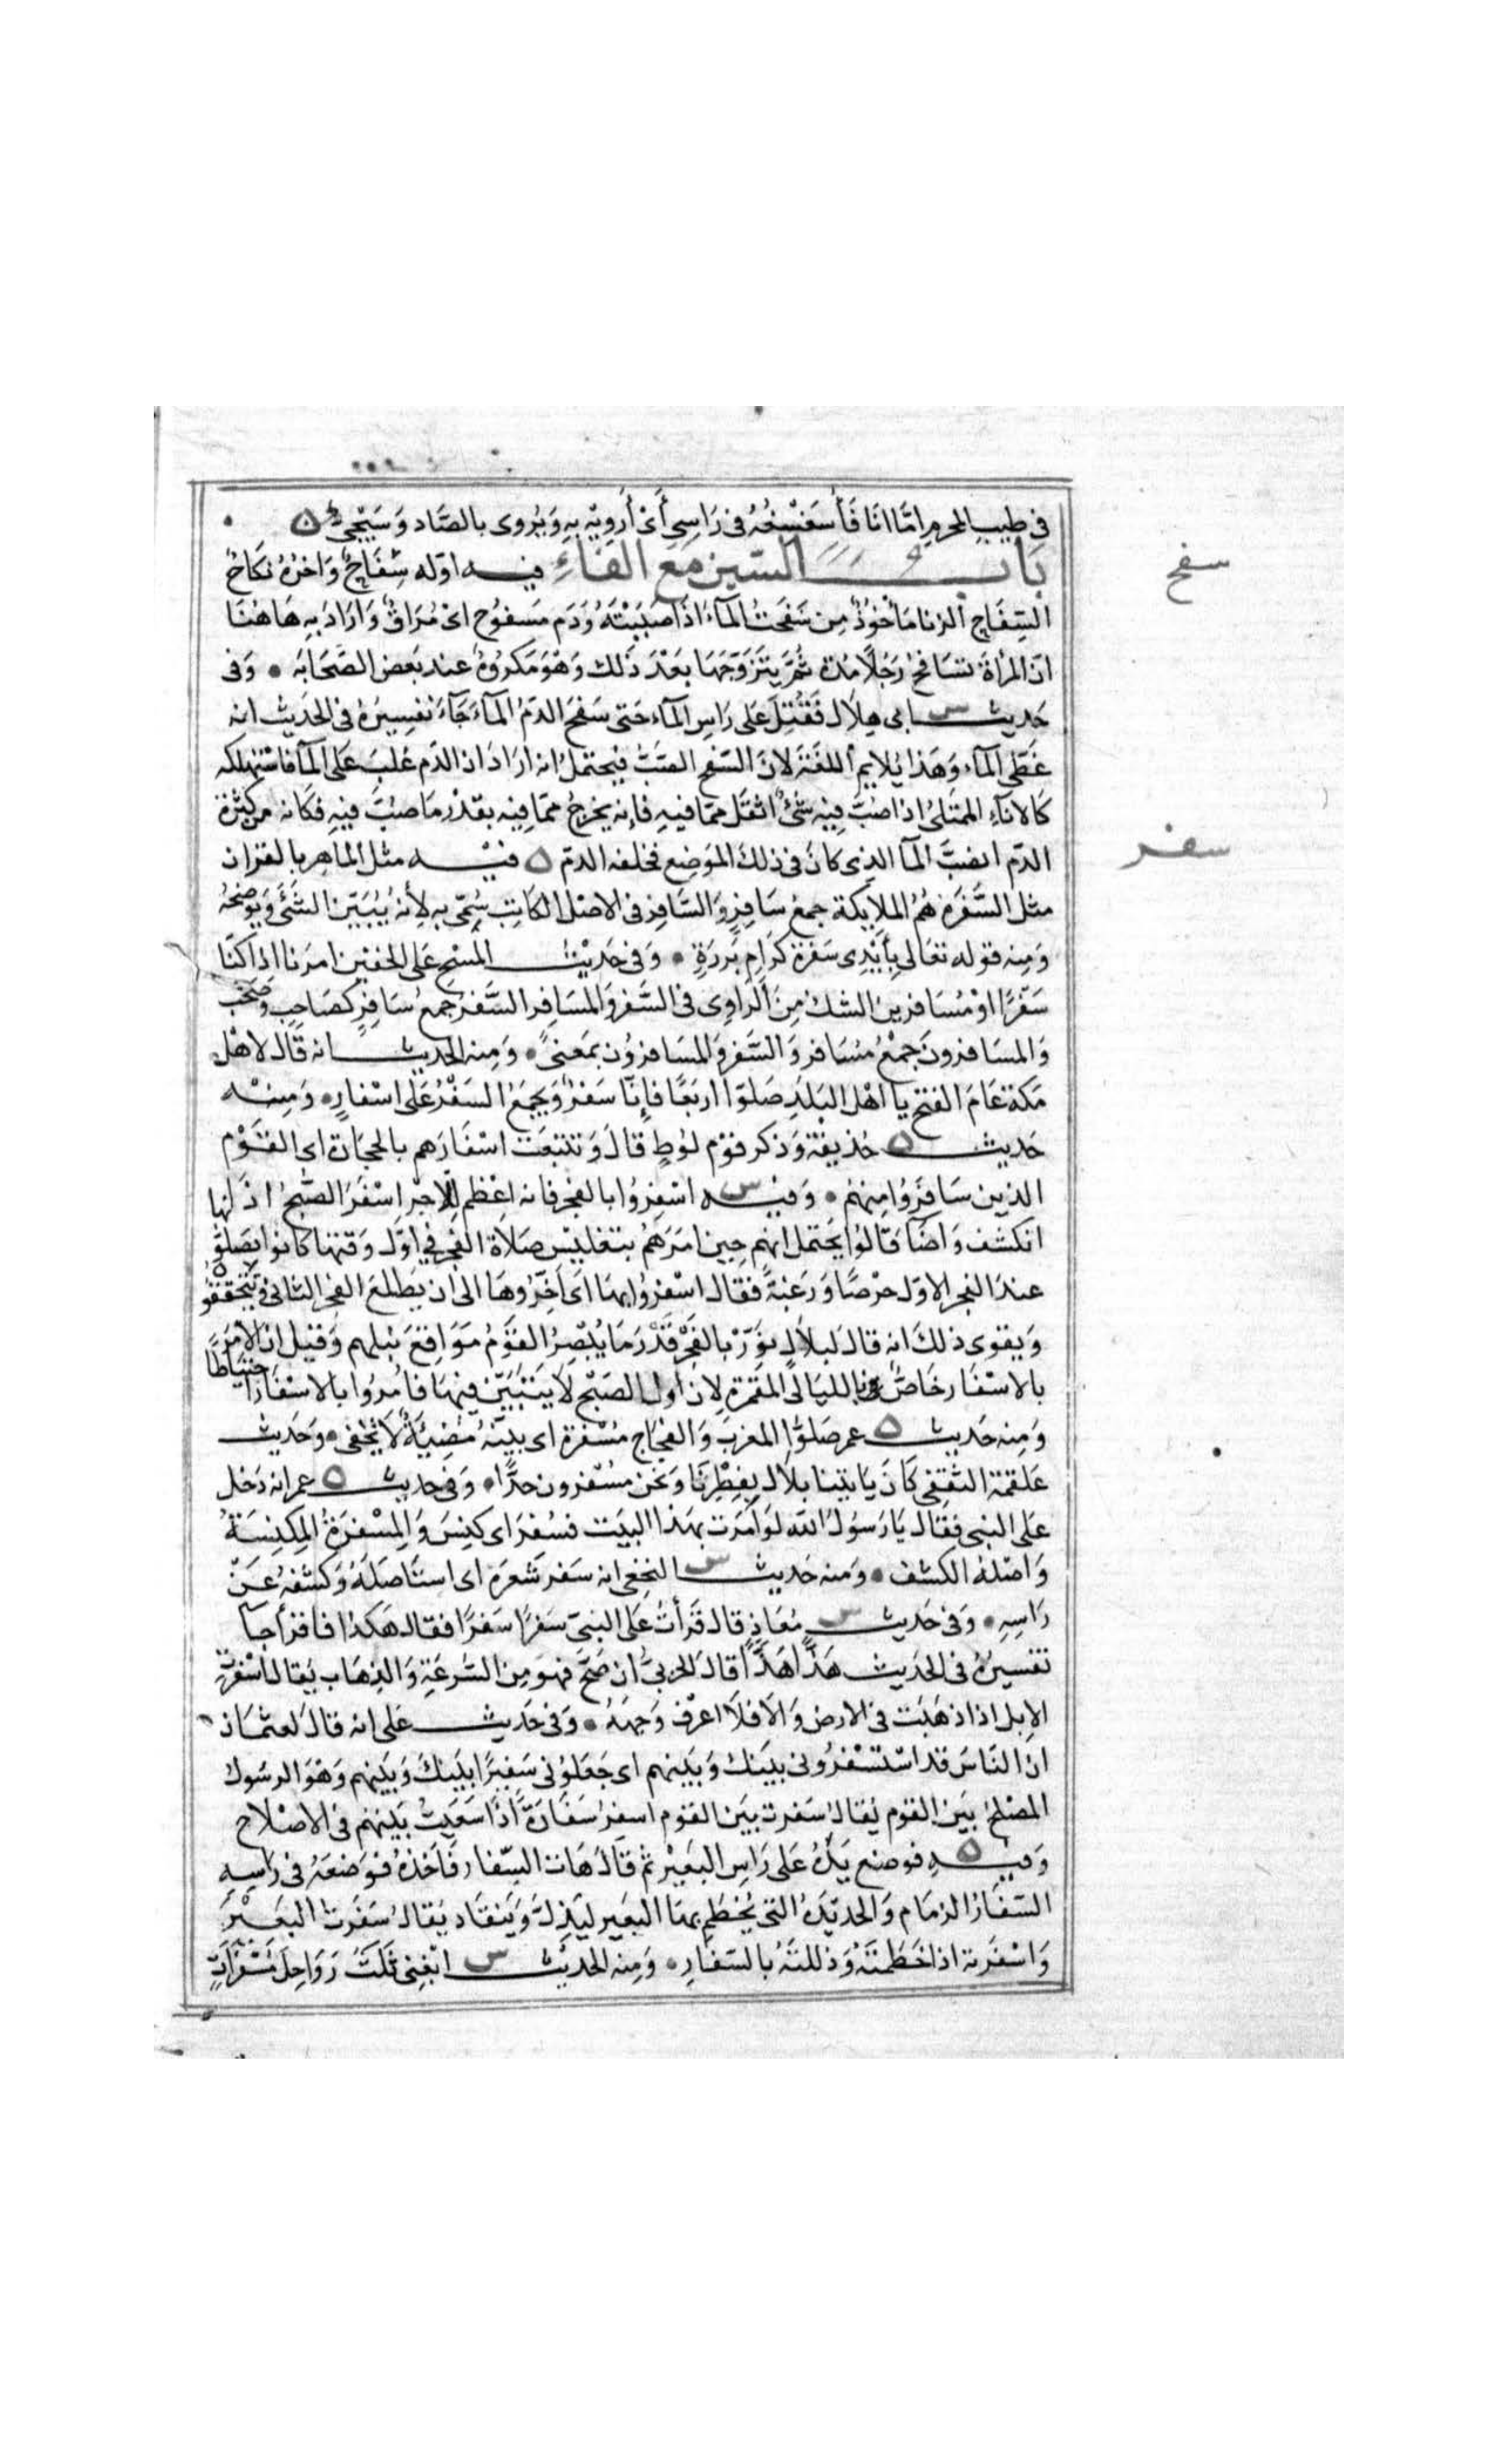 في طيب المحرم امّا انَا فَأُسَغْسِغُهُ في رَاسِي أَيْ أُرَوِيْه بِهِ وَيُروى بالصَّاد وَسَيَجِيُ ه
بَابُ السّين مَعَ الفَاءِ فيه اوّله سِفَاحٌ وَاخرُهُ نكَاحٌ
سفح
السِّفَاح الزنا مَأخُوذٌ مِن سَفَحتُ المآءَ اذَا صَبَبْتَهُ وَدَم مَسفوُح اىْ مُرَاقٌ وَارَادَ بِهِ هَاهُنَا
انّ المرْاةَ تسَافحُ رَجُلاً مُدة ثُمَّ يتَزَوَّجَهَا بَعْدَ ذَلك وَهْوَ مَكرُوهٌ عند بَعض الصَّحَابَه • وَفى
حَديث س ابى هِلاَل فَقُتِلَ عَلى رَاسِ المآء حَتى سَفحَ الدّمُ المآءَ جَآءَ تفسِيرُهُ فى الحَديث انه
غَطّى المآءَ وَهَذا يُلايم اللغَةَ لانّ السّفح الصَبُّ فيحتملُ انه ارَادَ ان الدّم غلبَ عَلى المآ فاستَهلكه
كَالانآءِ الممتلئ اذا صُبّ فِيْه شئٌ اثقل ممّا فيهِ فإنه يخرجُ ممّا فِيْه بقدْر مَا صُبّ فيهِ فكَانه من كثرة
الدّم انصَبَّ المآ الذِى كانَ فى ذلكَ المَوضِع فخلفه الدمّ ه فيْه مثل الماهِر بالقرْان
سفر
مثل السَّفَرَة همُ الملايكة جمعُ سَافِرٍ وَالسّافِر فى الاصْل الكاتِب سُمّى بِه لِأنه يُبَيّن الشّئَ وَيوضحُهُ
وَمِنه قوله تعَالى بِأَيْدِى سَفَرة كرَامٍ بَررَةٍ • وَفى حَديْث المسْح عَلى الخفين امرَنا اذا كنّا
سَفْرًا اوْ مُسَافرين الشك مِنَ الرَّاوِى فى السَّفرِ وَالمسَافِر السَّفرُ جمعُ سَافِرٍ كصَاحِب وَصَحْب
وَالمسَافرُونَ جَمْعُ مُسَافر وَالسَّفر وَالمسَافرُوْن بمَعنىً • وَمِنه الحديث انه قَالَ لاهْل
مَكة عَامَ الفتح يا اهْل البَلدِ صَلوّا اربَعًا فإنّا سَفرٌ وَيجمَعُ السَفْرُ عَلى اسْفارٍ • وَمِنْه
حَديث ه حُذيفة وَذكر قوْم لُوطٍ قالَ وَتتبعَت اسْفَارَهم بالحجَارَة اى القوْم
الذين سَافَرُوا مِنهْم • وَفيْه س اسْفِرُوا بالفجْر فانه اعْظم للاجْرِ اسْفَرَ الصّبْحُ اذا
انكشف وَاضَآ قالوُا يحتمل انهم حِين امَرَهُم بتغليْس صَلاة الفجر في اوّل وَقتهَا كانوا يصَلوُّنها
عندَ الفجر الاوّل حرْصًا وَرَغبَةً فقال اسْفِرُوا بهَا اى اخِّرُوهَا الى ان يَطلعَ الفجر الثانى وَيتحققوُه
وَيقوى ذلكَ انه قالَ لبلاَل نوّرْ بالفَجْر قَدْرَ مَا يُبْصِرُ القوْمُ مَوَاقعَ نبلِهم وَقيل ان الامْرَ
بالاسْفَار خَاصٌّ فى الليَالى المقْمرَة لان أول الصبْح لاَ يَتبَيّن فيهَا فامُرُوا بالاسْفَار احتيَاطًا
وَمِنه حَديث ه عمر صَلوُّا المغربَ وَالفجَاج مُسْفرَة اى بيّنةٌ مُضِيئَةٌ لاَ تَخفى • وَحَديث
عَلقمَة الثقفِى كَانَ يَاتينا بلاَل بِفِطْرِنَا وَنحن مسْفرون جدًّا • وَفى حديث ه عمر انه دَخل
عَلى النبى فقال يَا رَسُولَ الله لوْ امَرت بهَذا البيَت فسُفرَ اى كنِسَ وَالمِسْفرَةُ المِكنِسَةُ
وَاصْلهُ الكشف • وَمنه حَديث س النخعِى انه سَفر شَعرَهُ اى استَاصَلهُ وَكشفهُ عَنْ
رَاسِهِ • وَفى حَديث س مُعَاذٍ قال قَرأتُ عَلى النبىّ سَفرًا سَفرًا فقال هَكذا فاقرَأ جآ
تفسيرُهُ فى الحَديث هَذًّا هَذًّا قالَ الحربىُّ ان صَحّ فهوَ مِن السّرعَةِ وَالذهَاب يقال أسْفرَت
الابِل اذا ذهَبَت فى الارض وَالا فلاَ اعرْف وَجهَهُ • وَفى حَديث عَلى انه قالَ لعثمَان
ان النّاسَ قد اسْتسْفرُونى بيَنك وَبَينهم اى جَعَلوُنى سَفيرًا بيَنكَ وَبَينهم وَهْوَ الرسُول
المصْلحُ بَينَ القوم يُقالُ سَفرت بَين القوْم اسفِرُ سَفَارَةً اذَا سَعَيتُ بَينهمْ فى الاصْلاح
وَفيهِ ه فوضع يَدَهُ عَلى رَاسِ البعيْر ثم قالَ هَات السّفار فَاخَذهُ فوَضعَهُ فى رَاسِه
السّفَارُ الزمَام وَالحديْدَةُ التى يُخطم بهَا البعَير ليَذِلّ وَيَنقاد يقال سَفَرت البعَيْر
وَاسْفَرته اذا خَطَمتَهُ وَذللتَهُ بالسّفَارِ • وَمِنه الحديْث س ابْغِنِى ثَلَثَ رَوَاحِلَ مُسْفَرَاتٍ